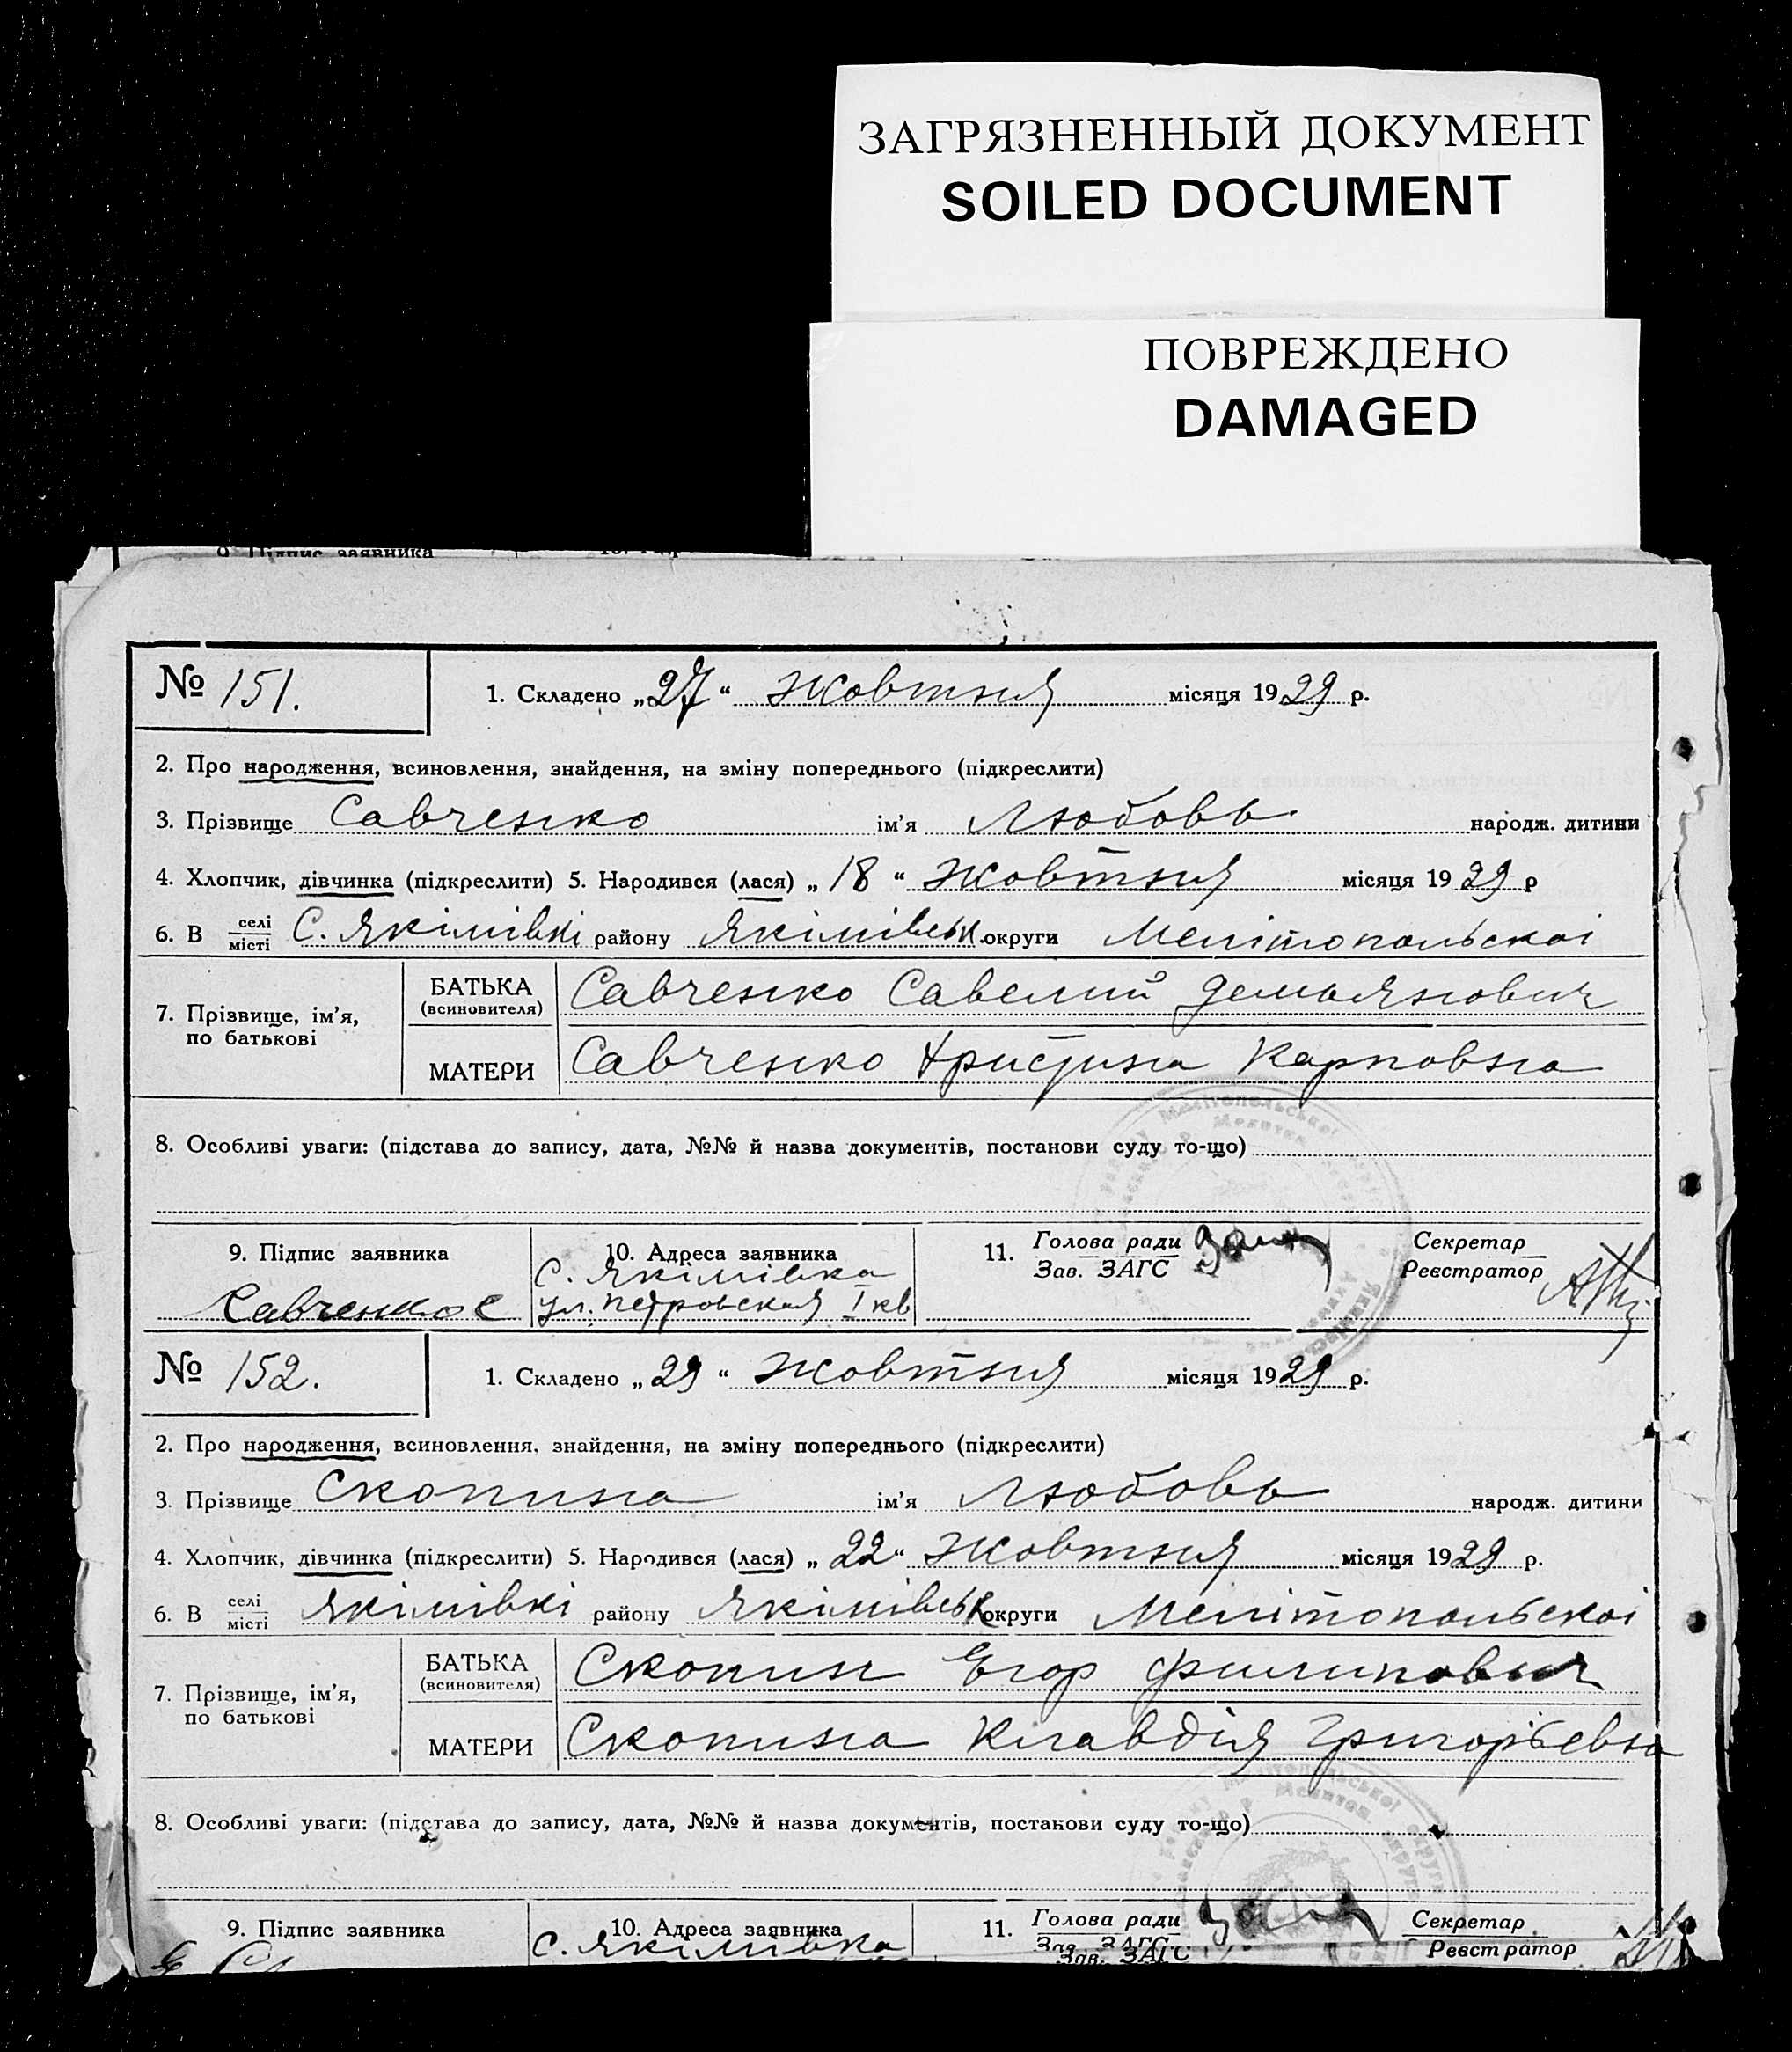 ЗАГРЯЗНЕННЫЙ ДОКУМЕНТ
SOILED DOCUMENT
ПОВРЕЖДЕНО
DAMAGED
9. Підпис заявника
№ 151. 1. Складено „27“ Жовтня місяця 1929 р.
2. Про народження, всиновлення, знайдення, на зміну попереднього (підкреслити)
3. Прізвище Савченко ім’я Любовь народж. дитини
4. Хлопчик, дівчинка (підкреслити) 5. Народився (лася) „18“ Жовтня місяця 1929 р
6. В селі місті С. Якімівкі району Якімівськ. округи Мелітопольскоі
7. Прізвище, ім’я, по батькові
БАТЬКА (всиновителя) Савченко Савелий Демьянович
МАТЕРИ Савченко Христина Карповна
8. Особливі уваги: (підстава до запису, дата, №№ й назва документів, постанови суду то-що)
9. Підпис заявника 10. Адреса заявника 11. Голова ради Зав. ЗАГС Секретар Реєстратор
Савченко С С. Якімівка
ул. Петровская I кв
№ 152. 1. Складено „29“ Жовтня місяця 1929 р.
2. Про народження, всиновлення, знайдення, на зміну попереднього (підкреслити)
3. Прізвище Скопина ім’я Любовь народж. дитини
4. Хлопчик, дівчинка (підкреслити) 5. Народився (лася) „22“ Жовтня місяця 1929 р.
6. В селі місті Якімівкі району Якімівськ округи Мелітопольскоі
7. Прізвище, ім’я, по батькові
БАТЬКА (всиновителя) Скопин Егор Филипович
МАТЕРИ Скопина Клавдія Григорьевна
8. Особливі уваги: (підстава до запису, дата, №№ й назва документів, постанови суду то-що)
9. Підпис заявника 10. Адреса заявника 11. Голова ради Зав. ЗАГС Секретар
С. Якімівка Зав. ЗАГС Реєстратор